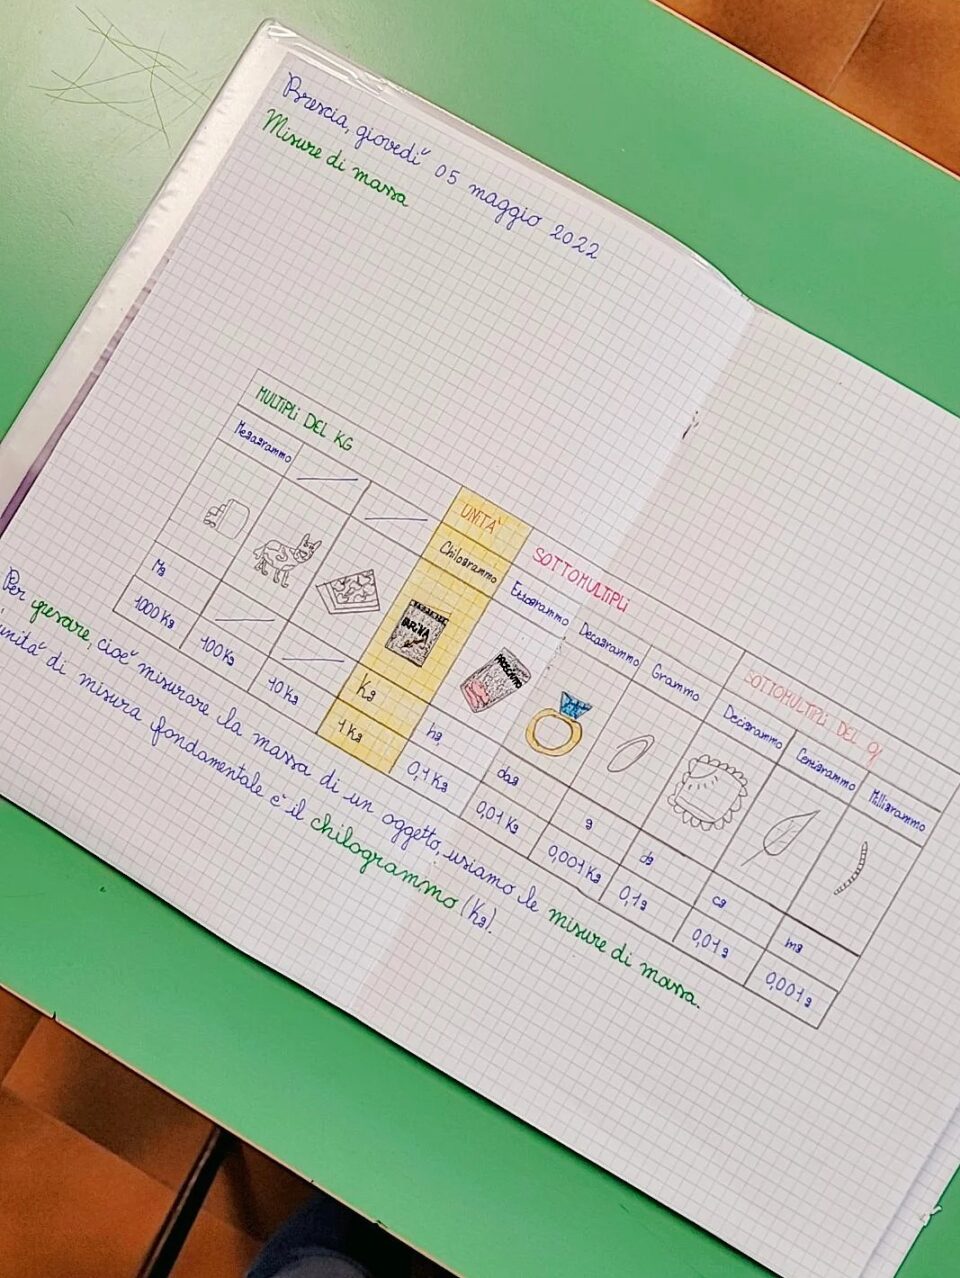 Brescia, giovedì 05 maggio 2022
Misure di massa
MULTIPLI DEL KG
UNITA'
SOTTOMULTIPLI
SOTTOMULTIPLI DEL g
Megagrammo
Chilogrammo
Ettogrammo
Decagrammo
Grammo
Decigrammo
Centigrammo
Milligrammo
FARINA
PROSCIUTTO
Mg
Kg
hg
dag
g
dg
cg
mg
1000 Kg
100 Kg
10 Kg
1 Kg
0,1 Kg
0,01 Kg
0,001 Kg
0,1 g
0,01 g
0,001 g
Per pesare, cioè misurare la massa di un oggetto, usiamo le misure di massa.
unità di misura fondamentale è il chilogrammo (Kg).